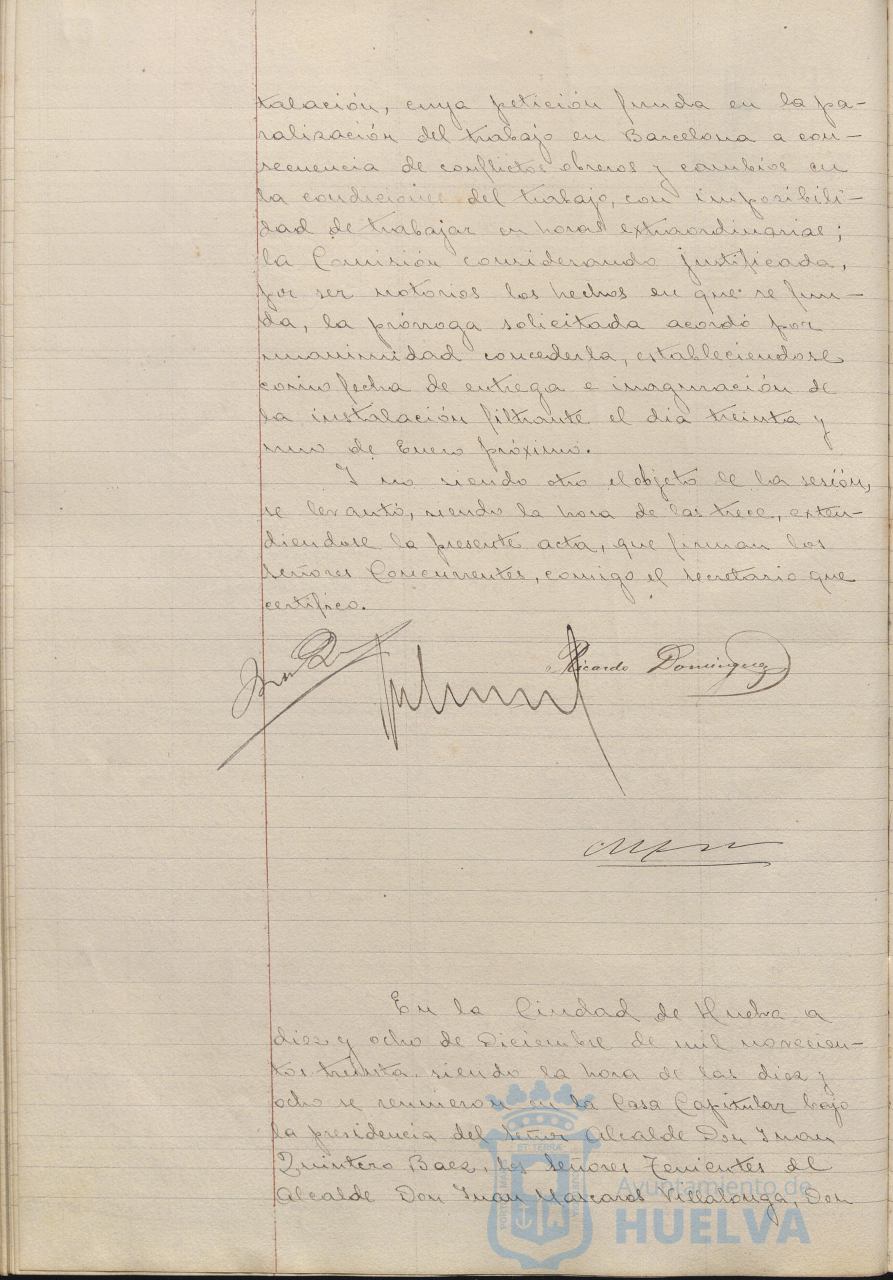 talación, cuya petición funda en la pa-
ralización del trabajo en Barcelona a con-
secuencia de conflictos obreros y cambios en
la condiciones del trabajo, con imposibili-
dad de trabajar en horas extraordinarias;
la Comisión considerando justificada,
por ser notorios los hechos en que se fun-
da, la prórroga solicitada acordó por
unanimidad concederla, estableciendose
como fecha de entrega e inaguración de
la instalación filtrante el dia treinta y
uno de Enero próximo.
Y no siendo otro el objeto de la sesión,
se levantó, siendo la hora de las trece, exten-
diendose la presente acta, que firman los
Señores Concurrentes, comigo el secretario que
certifico.
Ricardo Dominguez
En la Ciudad de Huelva a
diez y ocho de Diciembre de mil novecien-
tos treinta, siendo la hora de las diez y
ocho se reunieron en la Casa Capitular bajo
la presidencia del Señor Alcalde Don Juan
Quintero Baez, los Señores Tenientes de
Alcalde Don Juan Mascarós Villalonga, Don
Ayuntamiento de
HUELVA